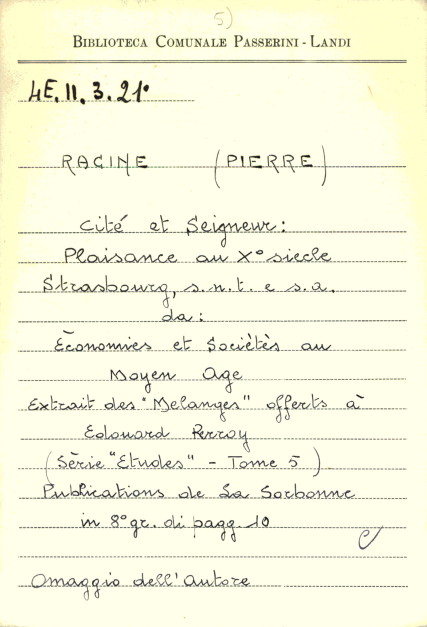 5)
BIBLIOTECA COMUNALE PASSERINI - LANDI
4E. II. 3. 21°
RACINE (PIERRE)
Cité et Seigneur:
Plaisance au X° siecle
Strasbourg, s.n.t. e s.a.
da:
Économies et Sociètès au
Moyen Age
Extrait des "Melanges" offerts à
Edouard Perroy
(Sèrie "Etudes" - Tome 5)
Publications de La Sorbonne
in 8° gr. di pagg. 10
Omaggio dell'Autore